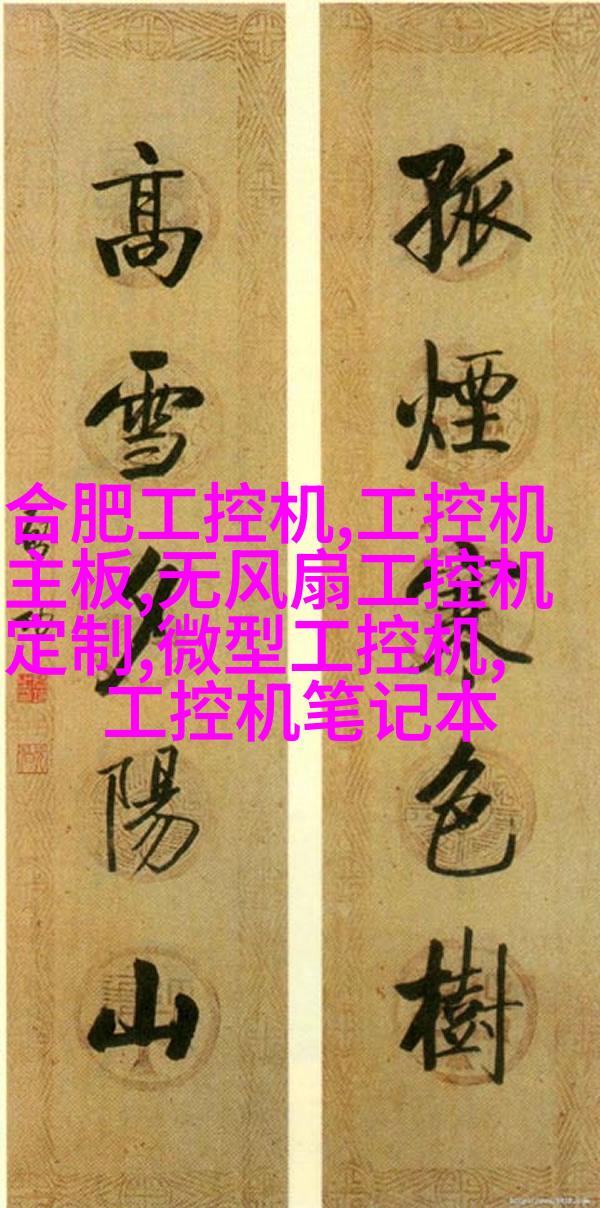 孤煙寒色樹
高雪夕陽山
合肥工控机,工控机
主板,无风扇工控机
定制,微型工控机,
工控机笔记本